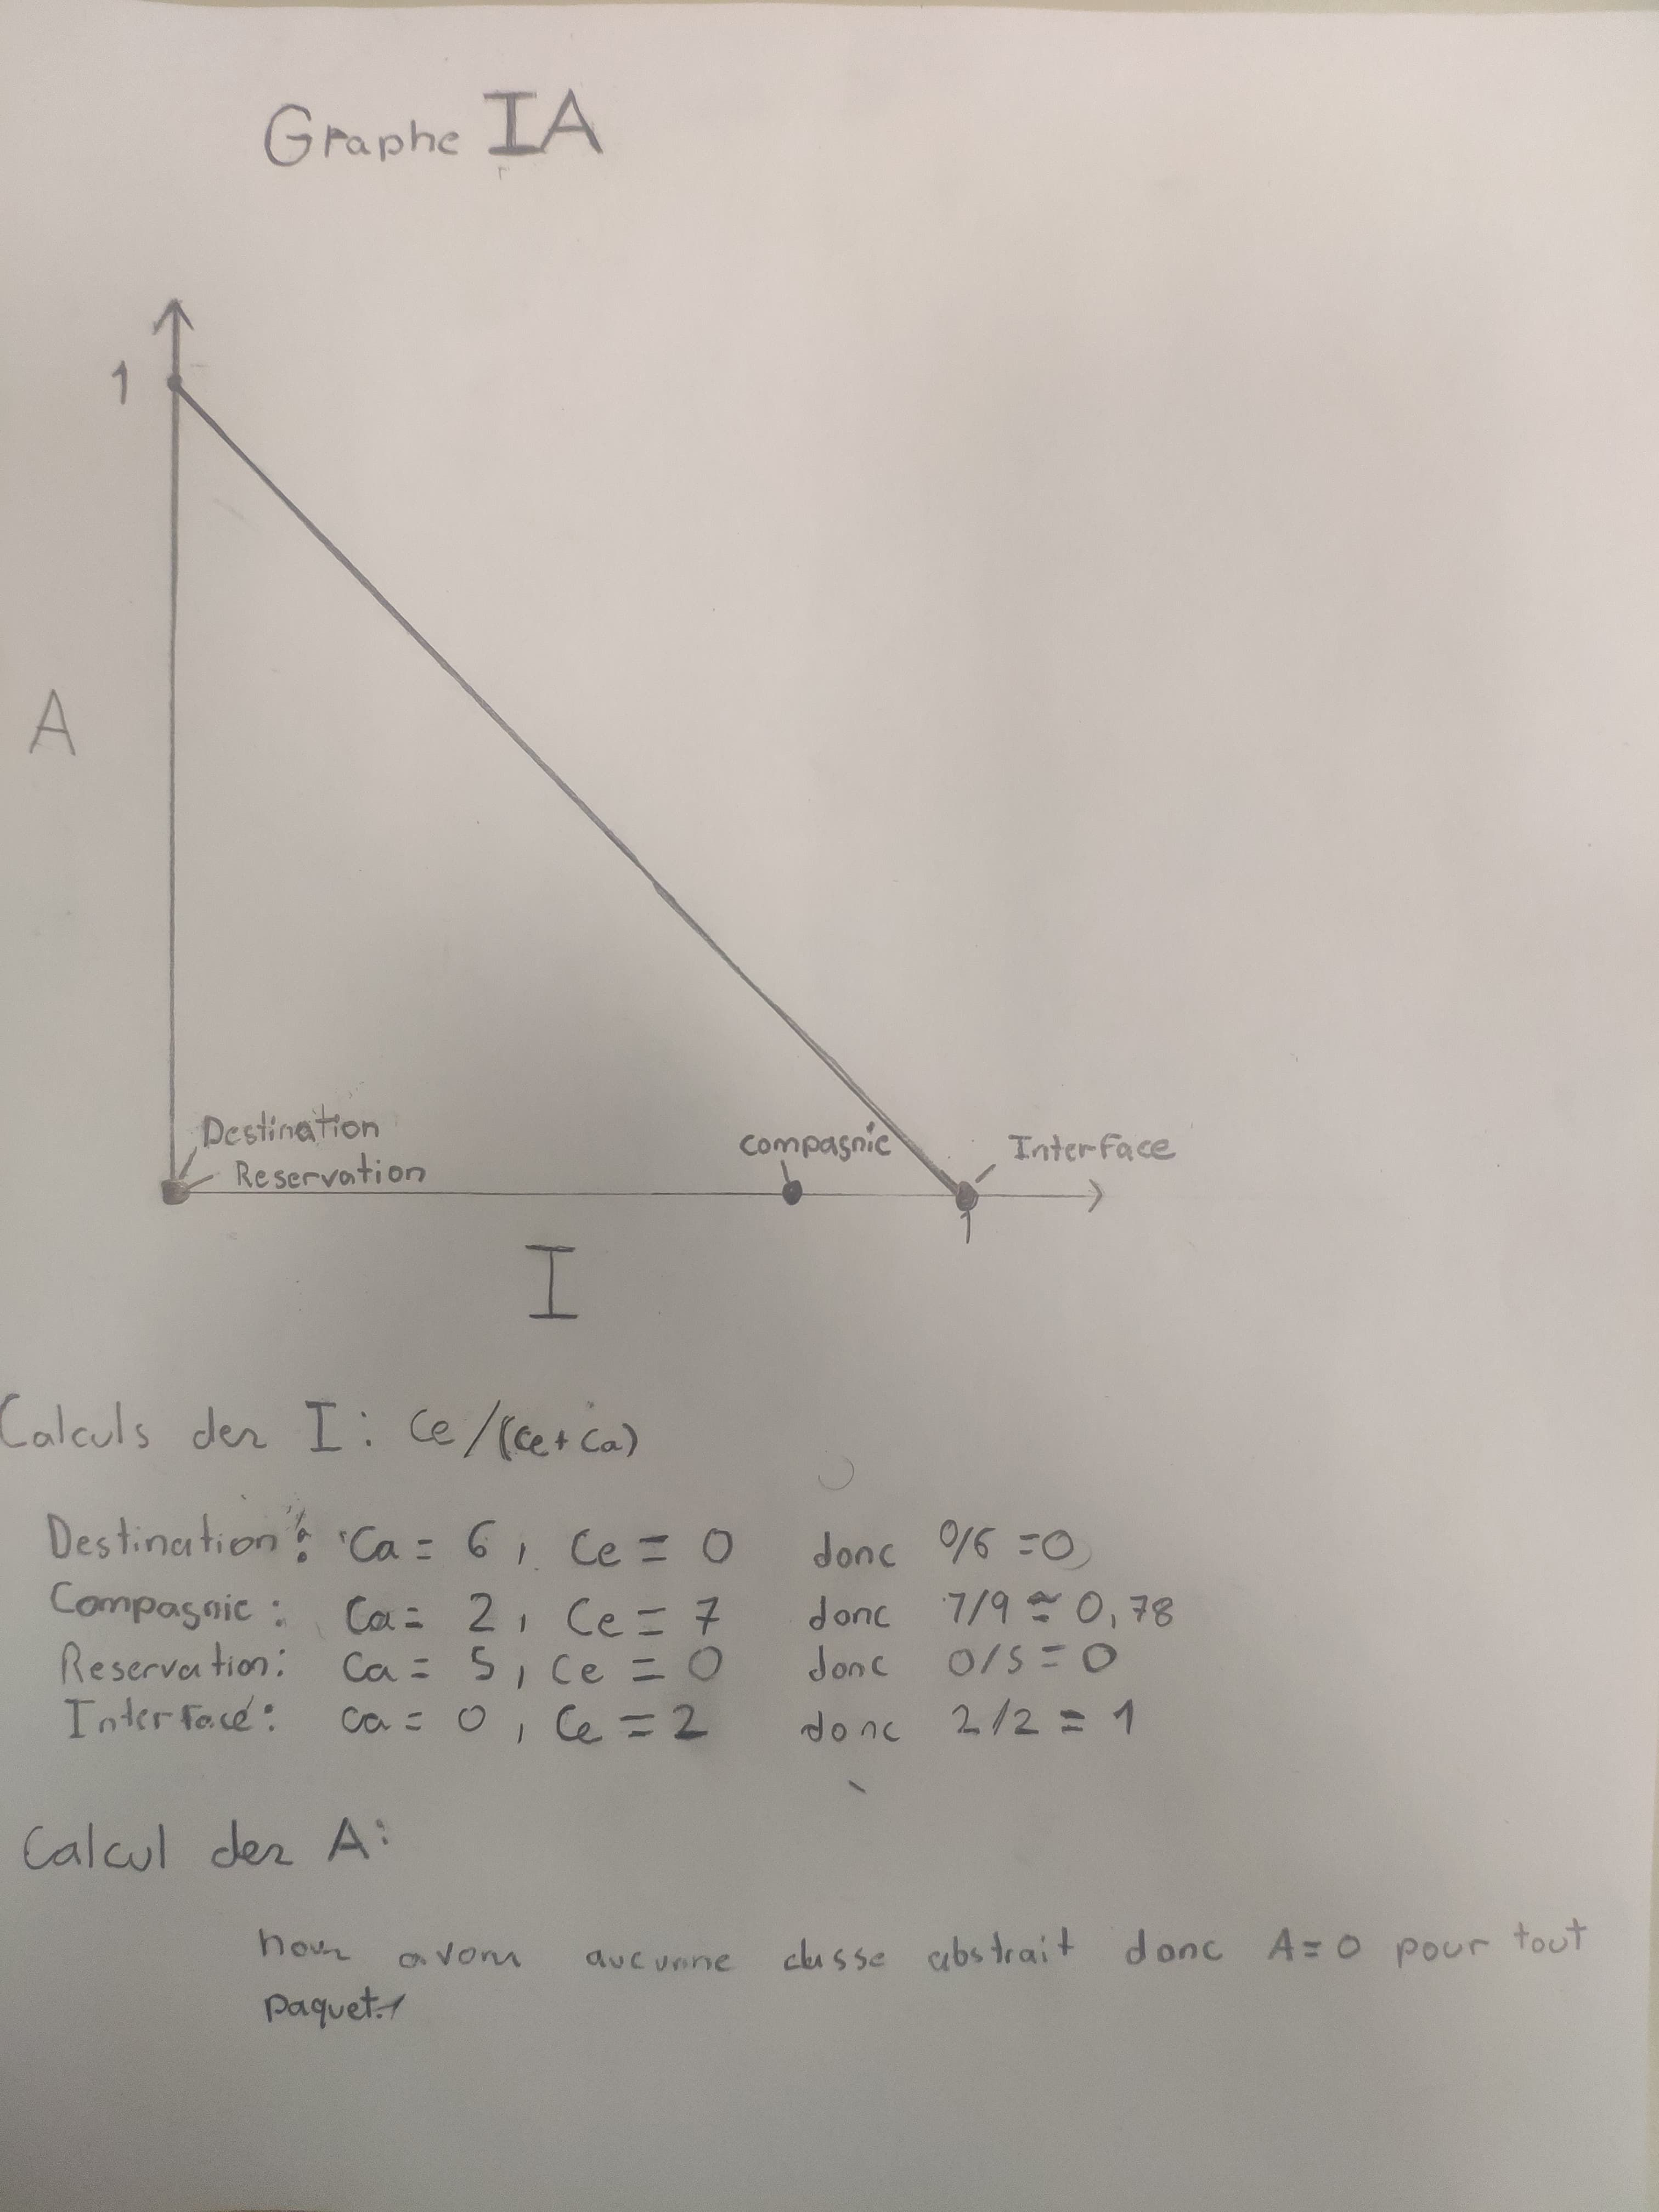 Graphe IA
1
A
Destination
Reservation
compagnie
Interface
1
I
Calculs des I : Ce/(Ce+Ca)
Destination : Ca = 6, Ce = 0 donc 0/6 = 0
Compagnie : Ca = 2, Ce = 7 donc 7/9 ≅ 0,78
Reservation : Ca = 5, Ce = 0 donc 0/5 = 0
Interface : Ca = 0, Ce = 2 donc 2/2 = 1
Calcul des A :
nous avons aucunne classe abstrait donc A = 0 pour tout
paquet.